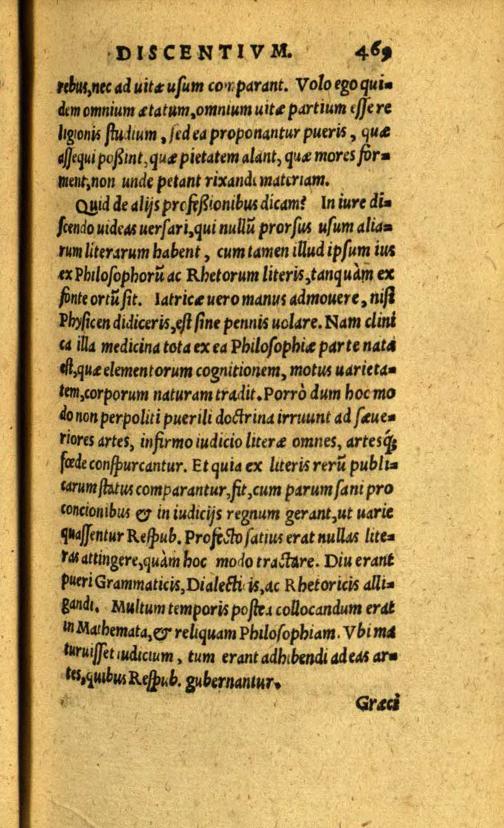 DISCENTIVM. 469
rebus, nec ad uitæ usum comparant. Volo ego qui=
dem omnium ætatum, omnium uitæ partium esse re
ligionis studium, sed ea proponantur pueris, quæ
assequi poßint, quæ pietatem alant, quæ mores for=
ment, non unde petant rixandi materiam.
Quid de alijs profeßionibus dicam? In iure di=
scendo uideas uersari, qui nullũ prorsus usum alia=
rum literarum habent, cum tamen illud ipsum ius
ex Philosophorũ ac Rhetorum literis, tanquàm ex
fonte ortũ sit. Iatricæ uero manus admouere, nisi
Physicen didiceris, est sine pennis uolare. Nam clini
ca illa medicina tota ex ea Philosophiæ parte nata
est, quæ elementorum cognitionem, motus uarieta=
tem, corporum naturam tradit. Porrò dum hoc mo
do non perpoliti puerili doctrina irruunt ad sæue=
riores artes, infirmo iudicio literæ omnes, artesq́;
fœde conspurcantur. Et quia ex literis rerũ publi=
carum status comparantur, fit, cum parum sani pro
concionibus & in iudicijs regnum gerant, ut uarie
quassentur Respub. Profecto satius erat nullas lite=
ras attingere, quàm hoc modo tractare. Diu erant
pueri Grammaticis, Dialecticis, ac Rhetoricis alli=
gandi. Multum temporis postea collocandum erat
in Mathemata, & reliquam Philosophiam. Vbi ma
turuisset iudicium, tum erant adhibendi ad eas ar=
tes, quibus Respub. gubernantur.
Græci